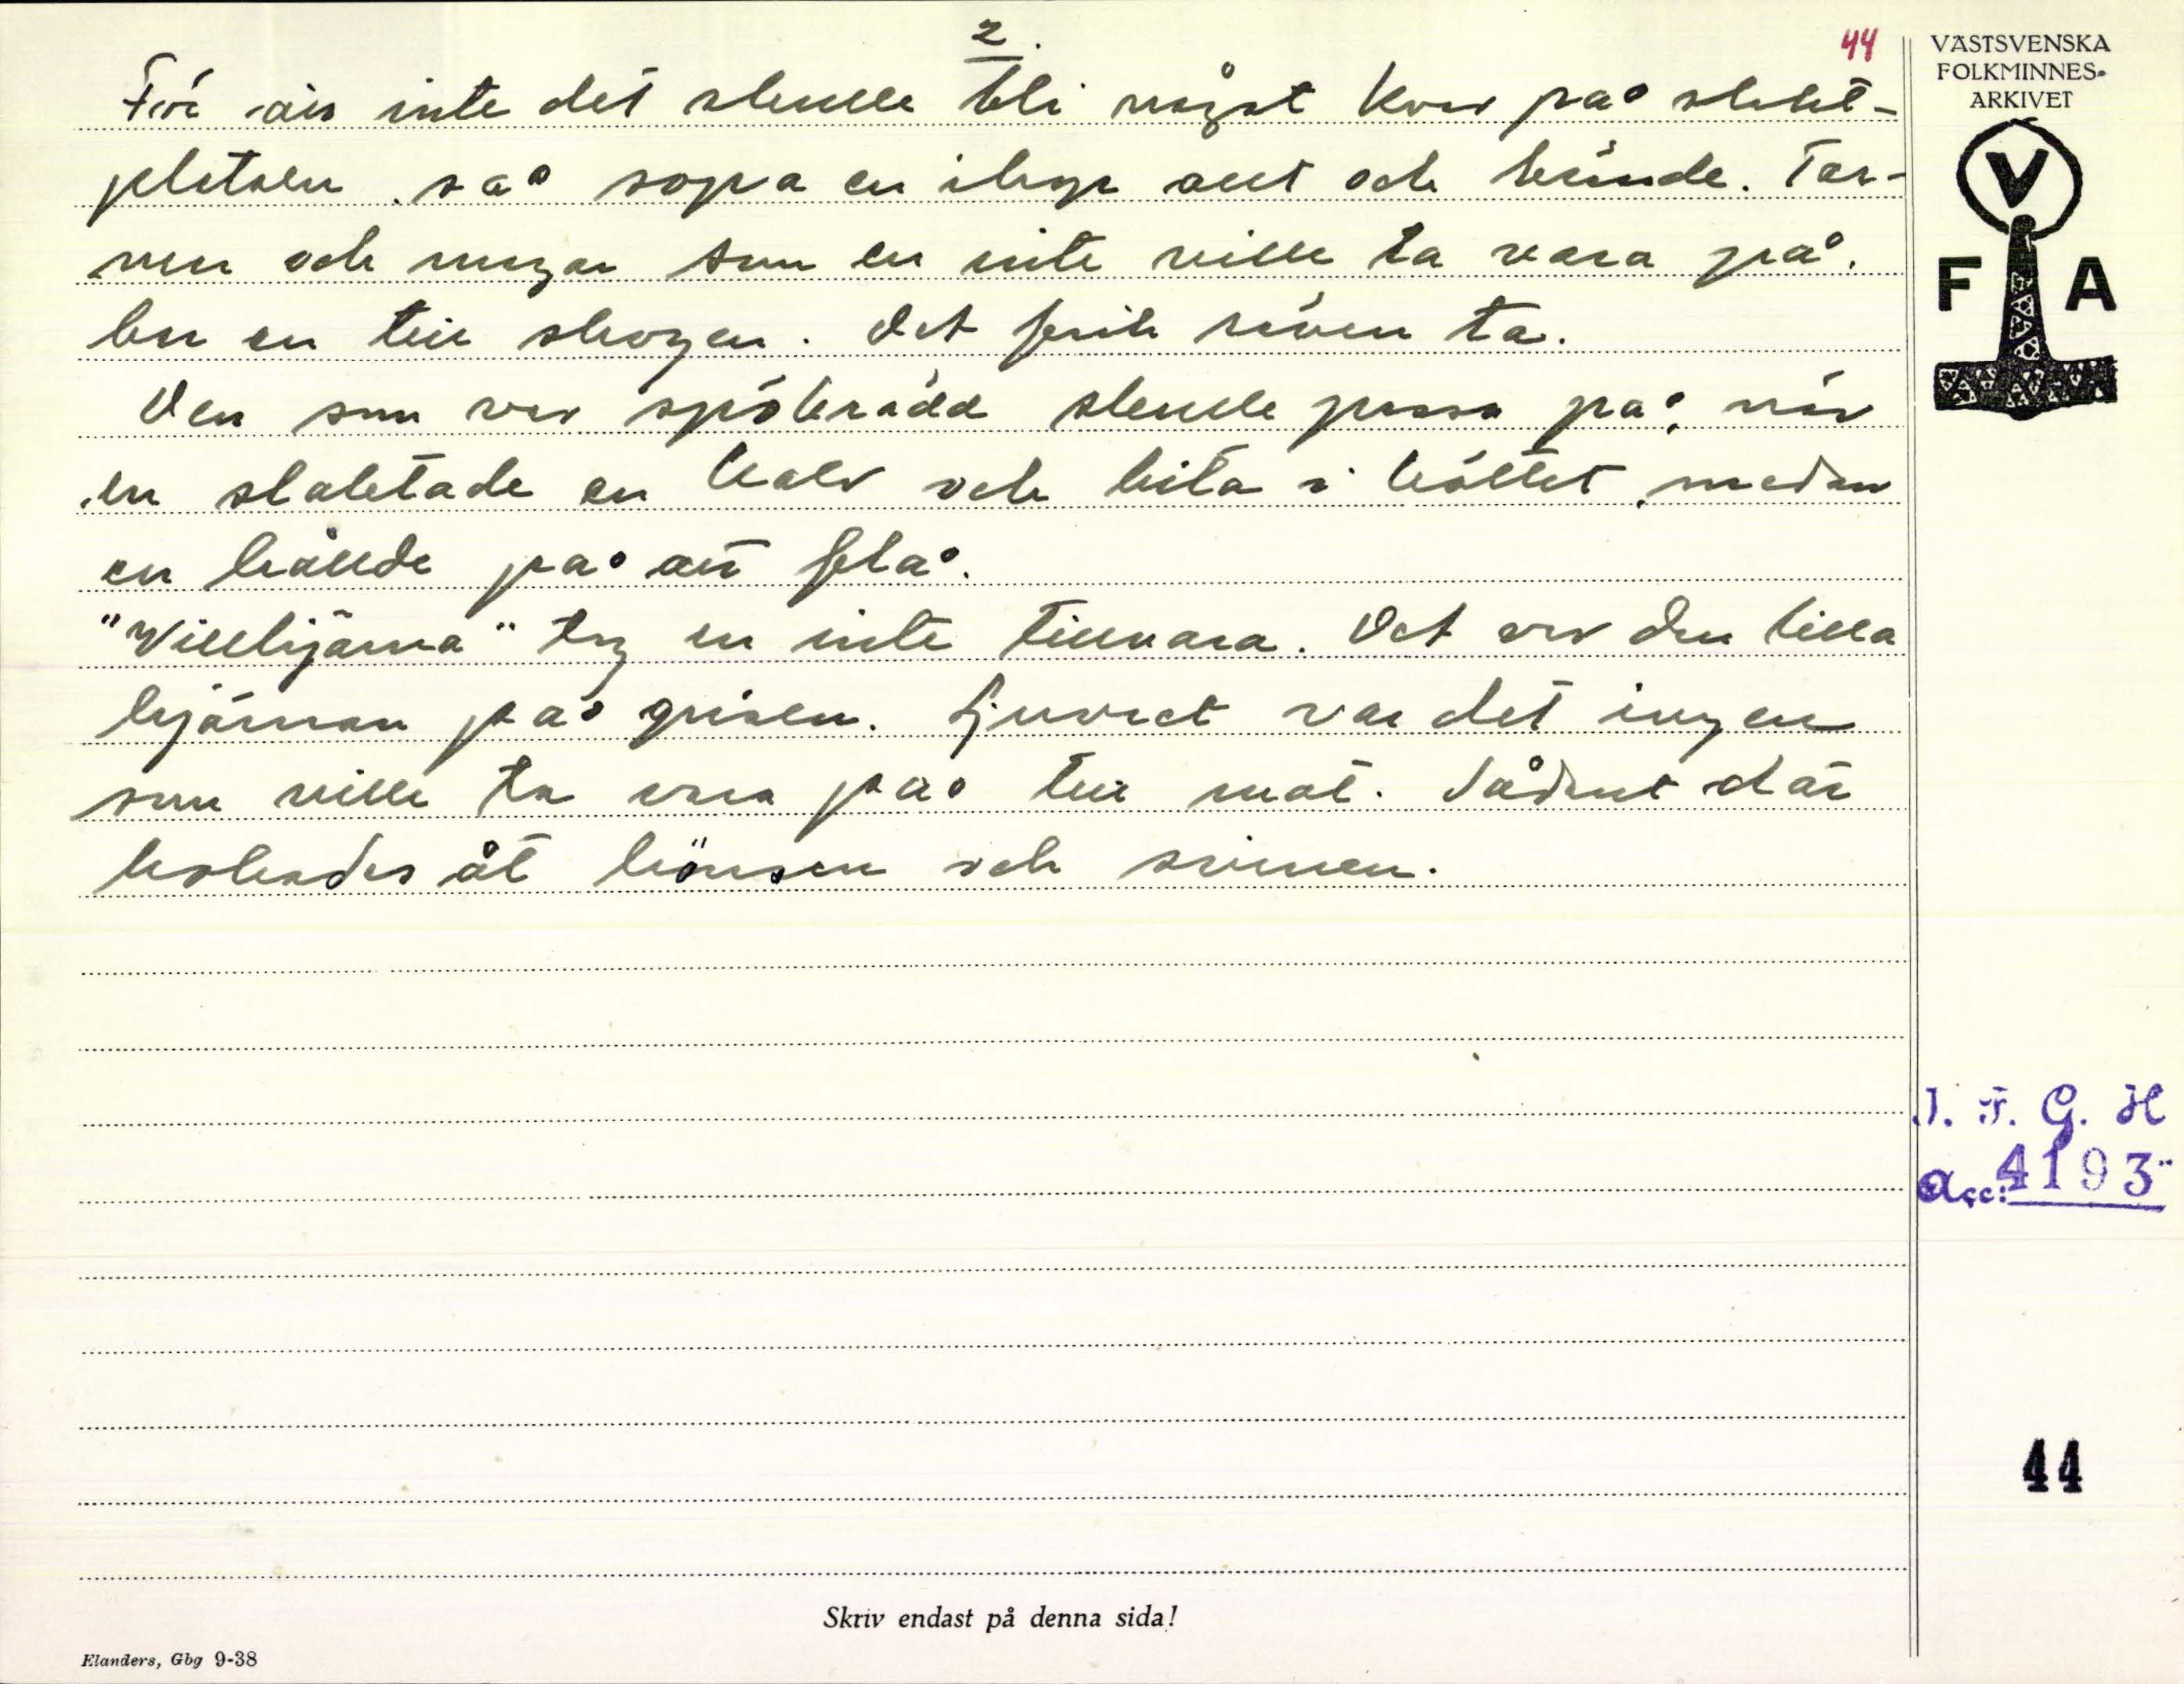 2.
44
För att inte det skulle bli något kvar på slakt-
platsen, så sopa en ihop allt och brände. Tar-
men och magen som en inte ville ta vara på.
bar en till skogen. Det fick räven ta.
Den som var spökrädd skulle passa på, när
en slaktade en kalv och bita i köttet, medan
en hållde på att flå.
"Villhjärna" tog en inte tillvara. Det var den lilla
hjärnan på grisen. Juvret var det ingen
som ville ta vara på till mat. Sådant där
kokades åt hönsen och svinen.
VÄSTSVENSKA
FOLKMINNES-
ARKIVET
V
F A
I. F. G. H
Acc: 4193
44
Skriv endast på denna sida!
Elanders, Gbg 9-38